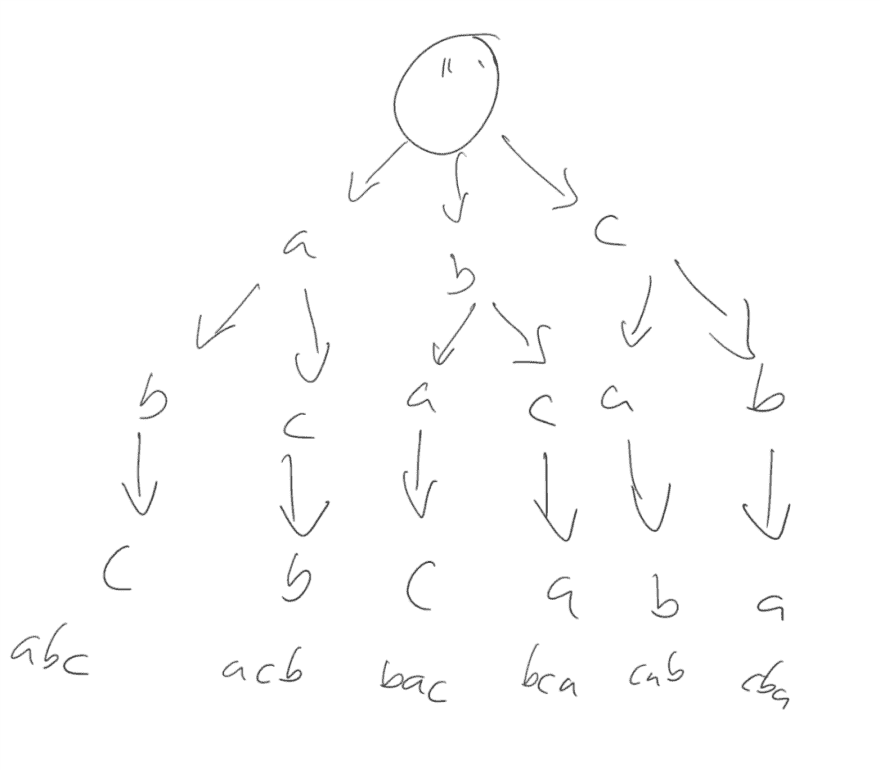 "
a b c
b c a c a b
c b c a b a
abc acb bac bca cab cba